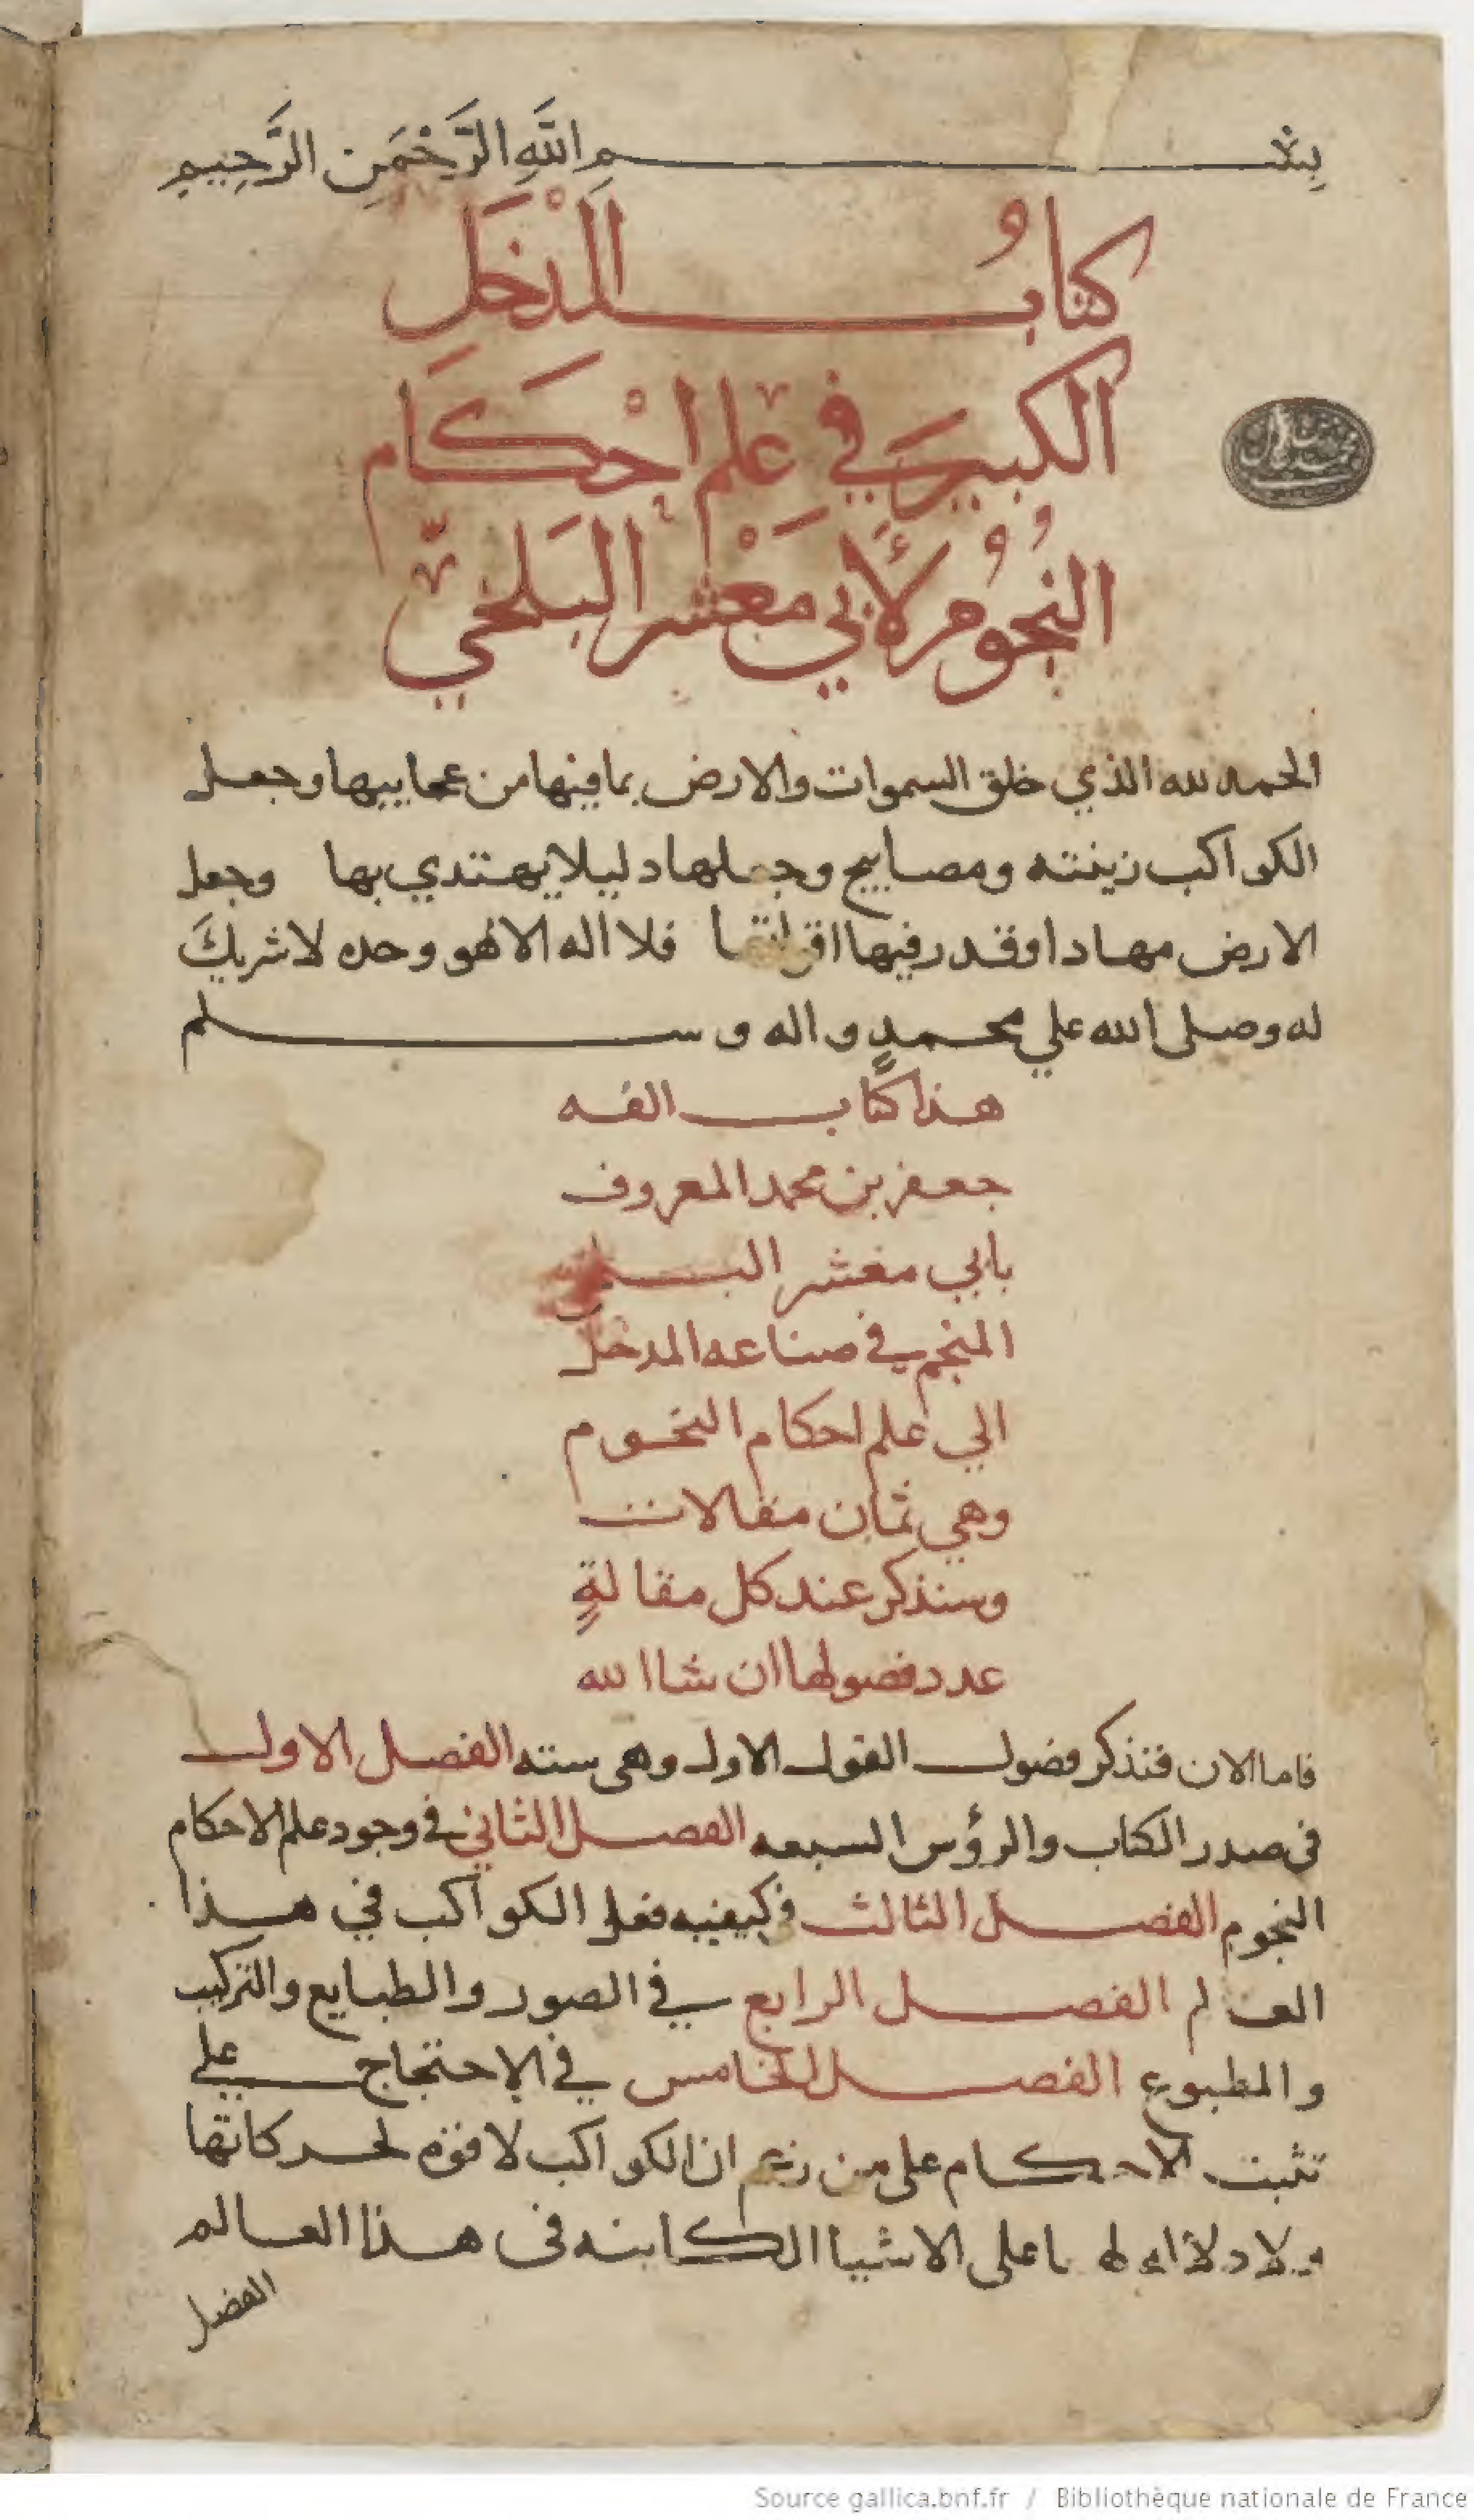 بسم الله الرَّحْمَنِ الرَّحِيمِ
كتابُ المَدْخَلِ
الكبير في علم احْكَام
النُجُوُم لأَبي مَعْشر البَلخيّ
الحمد لله الذي خلق السموات والارض بما فيها من عجايبها وجعل
الكواكب زينته ومصابيح وجعلها دليلا يهتدي بها وجعل
الارض مهادا وقدر فيها اقواتها فلا اله الا هو وحده لا شريكَ
له وصلى الله علي محمدٍ واله وسلم
هذا كتاب الفه
جعفر بن محمد المعروف
بابي معشر
المنجم في صناعه المدخل
الي علم احكام النجوم
وهي ثمان مقالات
وسنذكر عند كل مقالةٍ
عدد فصولها ان شا الله
فاما الان فنذكر فصول القول الاول وهى سته الفصل الاول
فى صدر الكتاب والرؤس السبعه الفصل الثاني في وجود علم الاحكام
النجوم الفصل الثالث في كيفيه فعل الكواكب في هذا
العالم الفصل الرابع في الصور والطبايع والتركيب
والمطبوع الفصل الخامس في الاحتجاج علي
تثبت الاحكام على من زعم ان الكواكب لا قوة لحركاتها
ولا دلاله لها على الاشيا الكاينه فى هذا العالم
الفصل
Source gallica.bnf.fr / Bibliothèque nationale de France